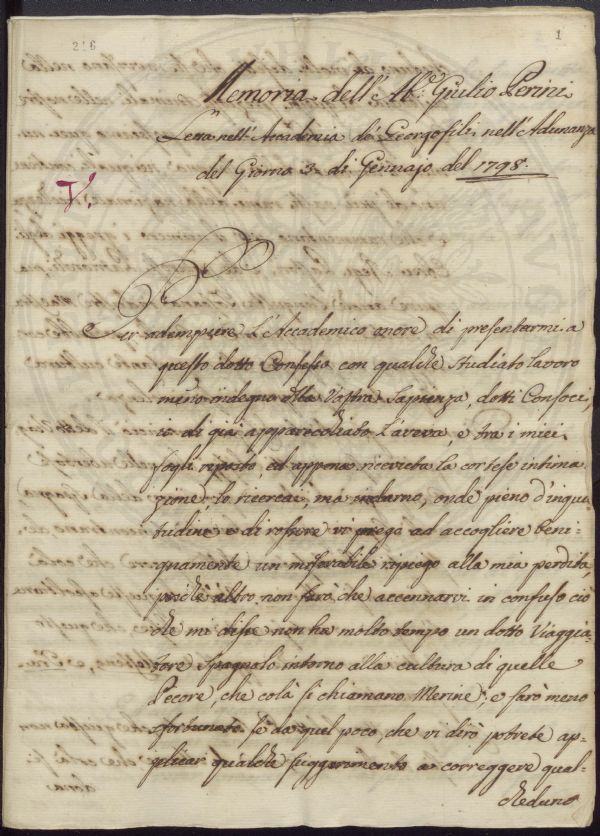 216
1
Memoria dell'Ab.e Giulio Perini
Letta nell'Accademia de' Georgofili, nell'Adunanza
del Giorno 3 di Gennajo del 1798.
V.
Per adempiere l'Accademico onore di presentarmi a
questo dotto Consesso con qualche studiato lavoro
meno indegno della Vostra Sapienza, dotti Consocj,
io di già apparecchiato l'aveva, e tra i miei
fogli riposto, ed appena ricevuta la cortese intima
zione, lo ricercai, ma indarno, onde pieno d'inquie
tudine e di rossore vi prego ad accogliere beni-
gnamente un miserabile ripiego alla mia perdita,
poiche altro non farò che accennarvi in confuso ciò
che mi disse non ha molto tempo un dotto Viaggia-
tore Spagnolo intorno alla cultura di quelle
Pecore, che colà si chiamano Merine; e sarò meno
sfortunato se da quel poco, che vi dirò potrete ap-
plicar qualche suggerimento a correggere qual-
cheduno